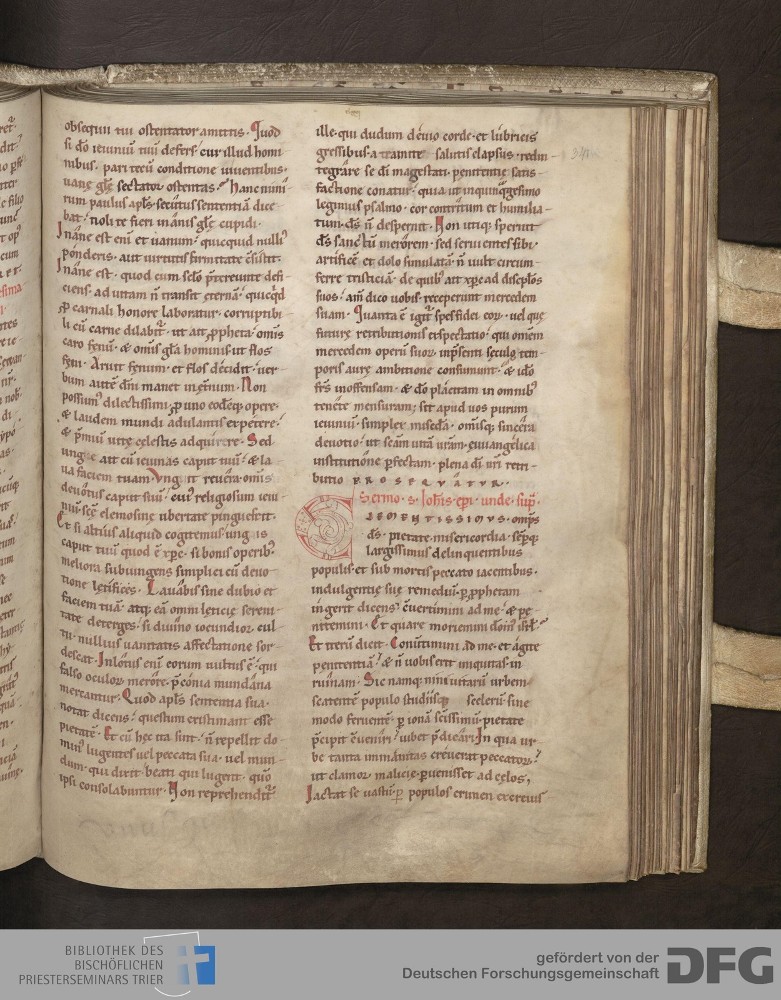 obsequii tui ostentator amittis. Quod
si dõ ieiuniũ tuũ defers. cur illud homi
nibus. pari tecũ conditione uiuentibus.
uanę glę sectator ostentas? Hanc nimi
rum paulus apls secutus sententiã dice
bat. Noli te fieri inanis glę cupidi.
Inane est eni et uanum. quicquid nulli
ponderis. aut uirtutis firmitate csistit.
Inane est. quod cum sclo pretereunte defi
ciens. ad uitam ñ transit ęternã. quicqd
p carnali honore laboratur. corruptibi
li cũ carne dilabit. ut ait ppheta. omis
caro fenũ. & omis gla hominis ut flos
feni. Aruit fenum. et flos decidit. uer
bum autẽ dni manet in ętnum. Non
possum dilectissimi p uno eodeq opere.
& laudem mundi adulantis expetere.
& pmiũ uitę cęlestis adquirere. Sed
unge ait cũ ieiunas caput tuũ. & la
ua faciem tuam. Ungit reuera omis
deuotus caput suũ. cui religiosum ieiu
niũ scę elemosinę ubertate pinguescit.
Et si altius aliquid cogitemus ungis
caput tuũ quod ẽ xpc. si bonis operib
meliora subiungens simplici cũ deuo
tione letifices. Lauabis sine dubio et
faciem tuã. atq eã omni leticię sereni
tate deterges. si diuino iocundior cul
tu nullius uanitatis affectatione sor
descat. Inlotus eni eorum uultus ẽ. qui
falso oculor merore pconia mundana
mercantur. Quod apls sententia sua
notat dicens. questum existimant esse
pietatẽ. Et cũ hęc ita sint. ñ repellit do
min lugentes uel peccata sua. uel mun
dum. qui dixit beati qui lugent. quo
ipsi consolabuntur. Non reprehendit
ille. qui dudum deuio corde. et lubricis
gressibus. a tramite salutis elapsus. redin
tegrare se di magestati. penitentię satis
factione conatur. quia ut in quinquagesimo
legimus psalmo. cor contritum et humilia
tum. ds ñ despernit. Non utiq spernit
ds sanctũ merorem. sed seruientes sibi
artificẽ et dolo simulatã ñ uult circum
ferre tristiciã. de quib ait xpc ad discplos
suos. am dico uobis. receperunt mercedem
suam. Quanta ẽ igit spes fidei eor. uel que
futurę retributionis exspectatio. qui omem
mercedem operũ suor. in psenti sęculo tem
poris aurę ambitione consumunt. & ido
frs inoffensam. & do placitam in omnib
tenete mensuram. sit apud uos purum
ieiuniũ. simplex misedã. omisq sincera
deuotio. ut scam uitã uram. euuangelica
institutione pfectam. plena di nri retri
butio PROSEQUATUR.
Sermo. s. Iohis. epi. unde. sup.
CLEMENTISSIMUS. omps
ds. pietate. misericordia. sepq
largissimus delinquentibus
populis. et sub mortis peccato iacentibus.
indulgentię suę remediũ p ppheta
ingerit dicens. cuertimini ad me. & pe
nitemini. Et quare moriemini dom isrl.
Et iterũ dicit. Conutimini ad me. et agite
penitentiã. & ñ uobis erit iniquitas in
ruinam. Sic namq niniuitarũ urbem
scatentẽ populo studiisq scelerũ sine
modo feruentẽ. p ionã scissimũ. pietate
pcipit cueniri. iubet pdicari. In qua ur
be tanta immanitas creuerat peccator.
ut clamor malicię peruenisset ad cęlos.
Iactat se uastu. p populos crimen exercuis
BIBLIOTHEK DES
BISCHÖFLICHEN
PRIESTERSEMINARS TRIER
gefördert von der
Deutschen Forschungsgemeinschaft
DFG